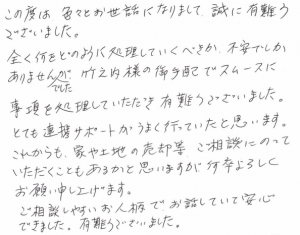 この度は 色々とお世話になりまして、誠に有難う
ございました。
全く何をどのように処理していくべきか、不安でしか
ありませんでしたが 竹之内様の御手配でスムースに
事項を処理していただき 有難うございました。
とても連携サポートがうまく行っていたと思います。
これからも、家や土地の売却等 ご相談にのって
いただくこともあるかと思いますが何卒よろしく
お願い申し上げます。
ご相談しやすいお人柄でお話していて安心
できました。有難うございました。